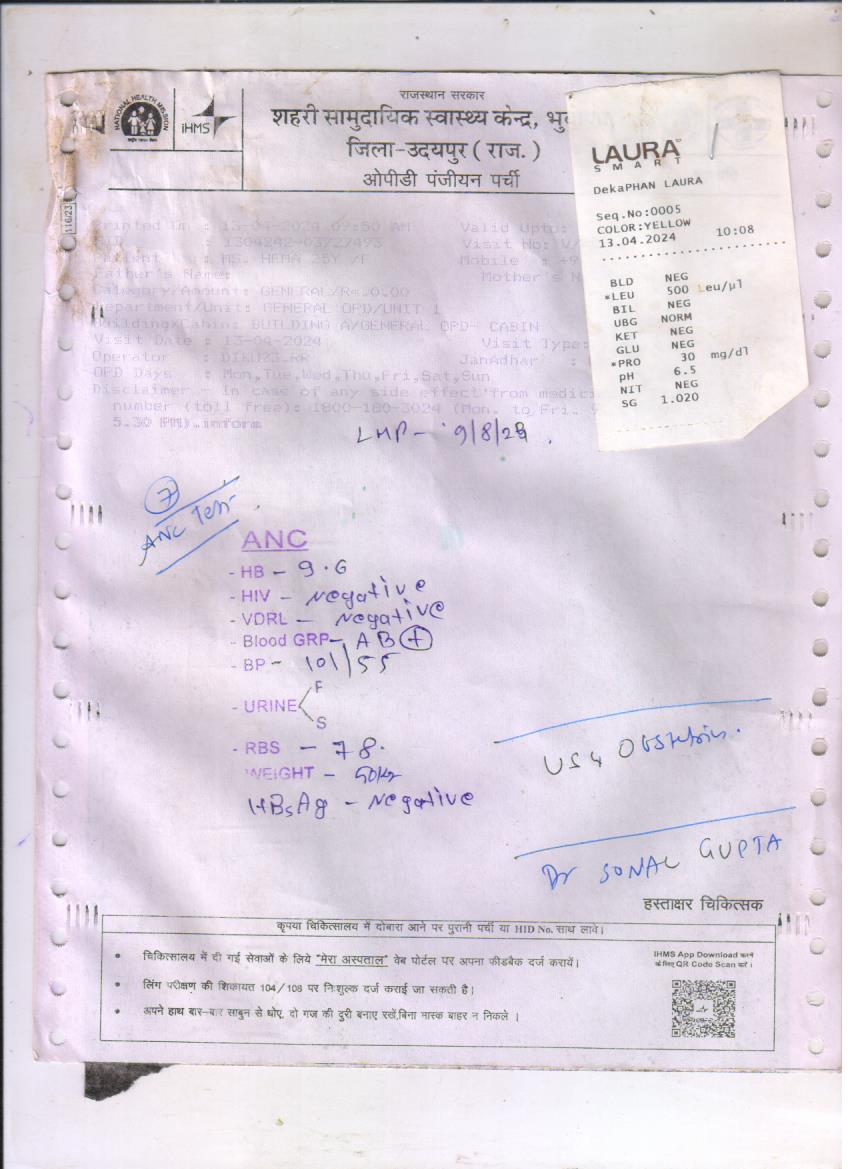 राजस्थान सरकार
NATIONAL HEALTH MISSION
iHMS
शहरी सामुदायिक स्वास्थ्य केन्द्र,
जिला-उदयपुर ( राज. )
ओपीडी पंजीयन पर्ची
116/23
LAURA
SMART
DekaPHAN LAURA
Seq.No:0005
COLOR:YELLOW
13.04.2024 10:08
BLD NEG
*LEU 500 Leu/µl
BIL NEG
UBG NORM
KET NEG
GLU NEG
*PRO 30 mg/dl
pH 6.5
NIT NEG
SG 1.020
Printed On : 13-04-2024 09:50 AM Valid Upto:
: 1304242-03727493 Visit No:
Patient : MS. HEMA 25Y /F Mobile : +9
Father's Name: Mother's N
Category/Amount: GENERAL/Rs.0.00
Department/Unit: GENERAL OPD/UNIT 1
Building/Cabin: BUILDING A/GENERAL OPD- CABIN
Visit Date : 13-04-2024 Visit Type:
Operator : DIKU23.RR JanAdhar :
OPD Days : Mon,Tue,Wed,Thu,Fri,Sat,Sun
Disclaimer - In case of any side effect from medici
number (toll free): 1800-180-3024 (Mon. to Fri. 9
5.30 PM).inform
LMP - 9/8/23
7
ANC Test
ANC
- HB - 9.6
- HIV - Negative
- VDRL - Negative
- Blood GRP - AB +
- BP - 101/55
- URINE F
S
- RBS - 78.
WEIGHT - 50kg
HBsAg - Negative
USG Obstetrics.
Dr SONAL GUPTA
हस्ताक्षर चिकित्सक
कृपया चिकित्सालय में दोबारा आने पर पुरानी पर्ची या HID No. साथ लावे।
• चिकित्सालय में दी गई सेवाओं के लिये "मेरा अस्पताल" वेब पोर्टल पर अपना फीडबैक दर्ज करायें।
• लिंग परीक्षण की शिकायत 104/108 पर निःशुल्क दर्ज कराई जा सकती है।
• अपने हाथ बार-बार साबुन से धोए, दो गज की दुरी बनाए रखें,बिना मास्क बाहर न निकले ।
IHMS App Download करने
के लिए QR Code Scan करें।